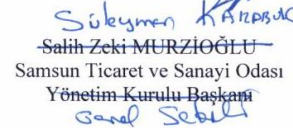 Süleyman KARABUK
Salih Zeki MURZİOĞLU
Samsun Ticaret ve Sanayi Odası
Yönetim Kurulu Başkanı
Genel Sekreter